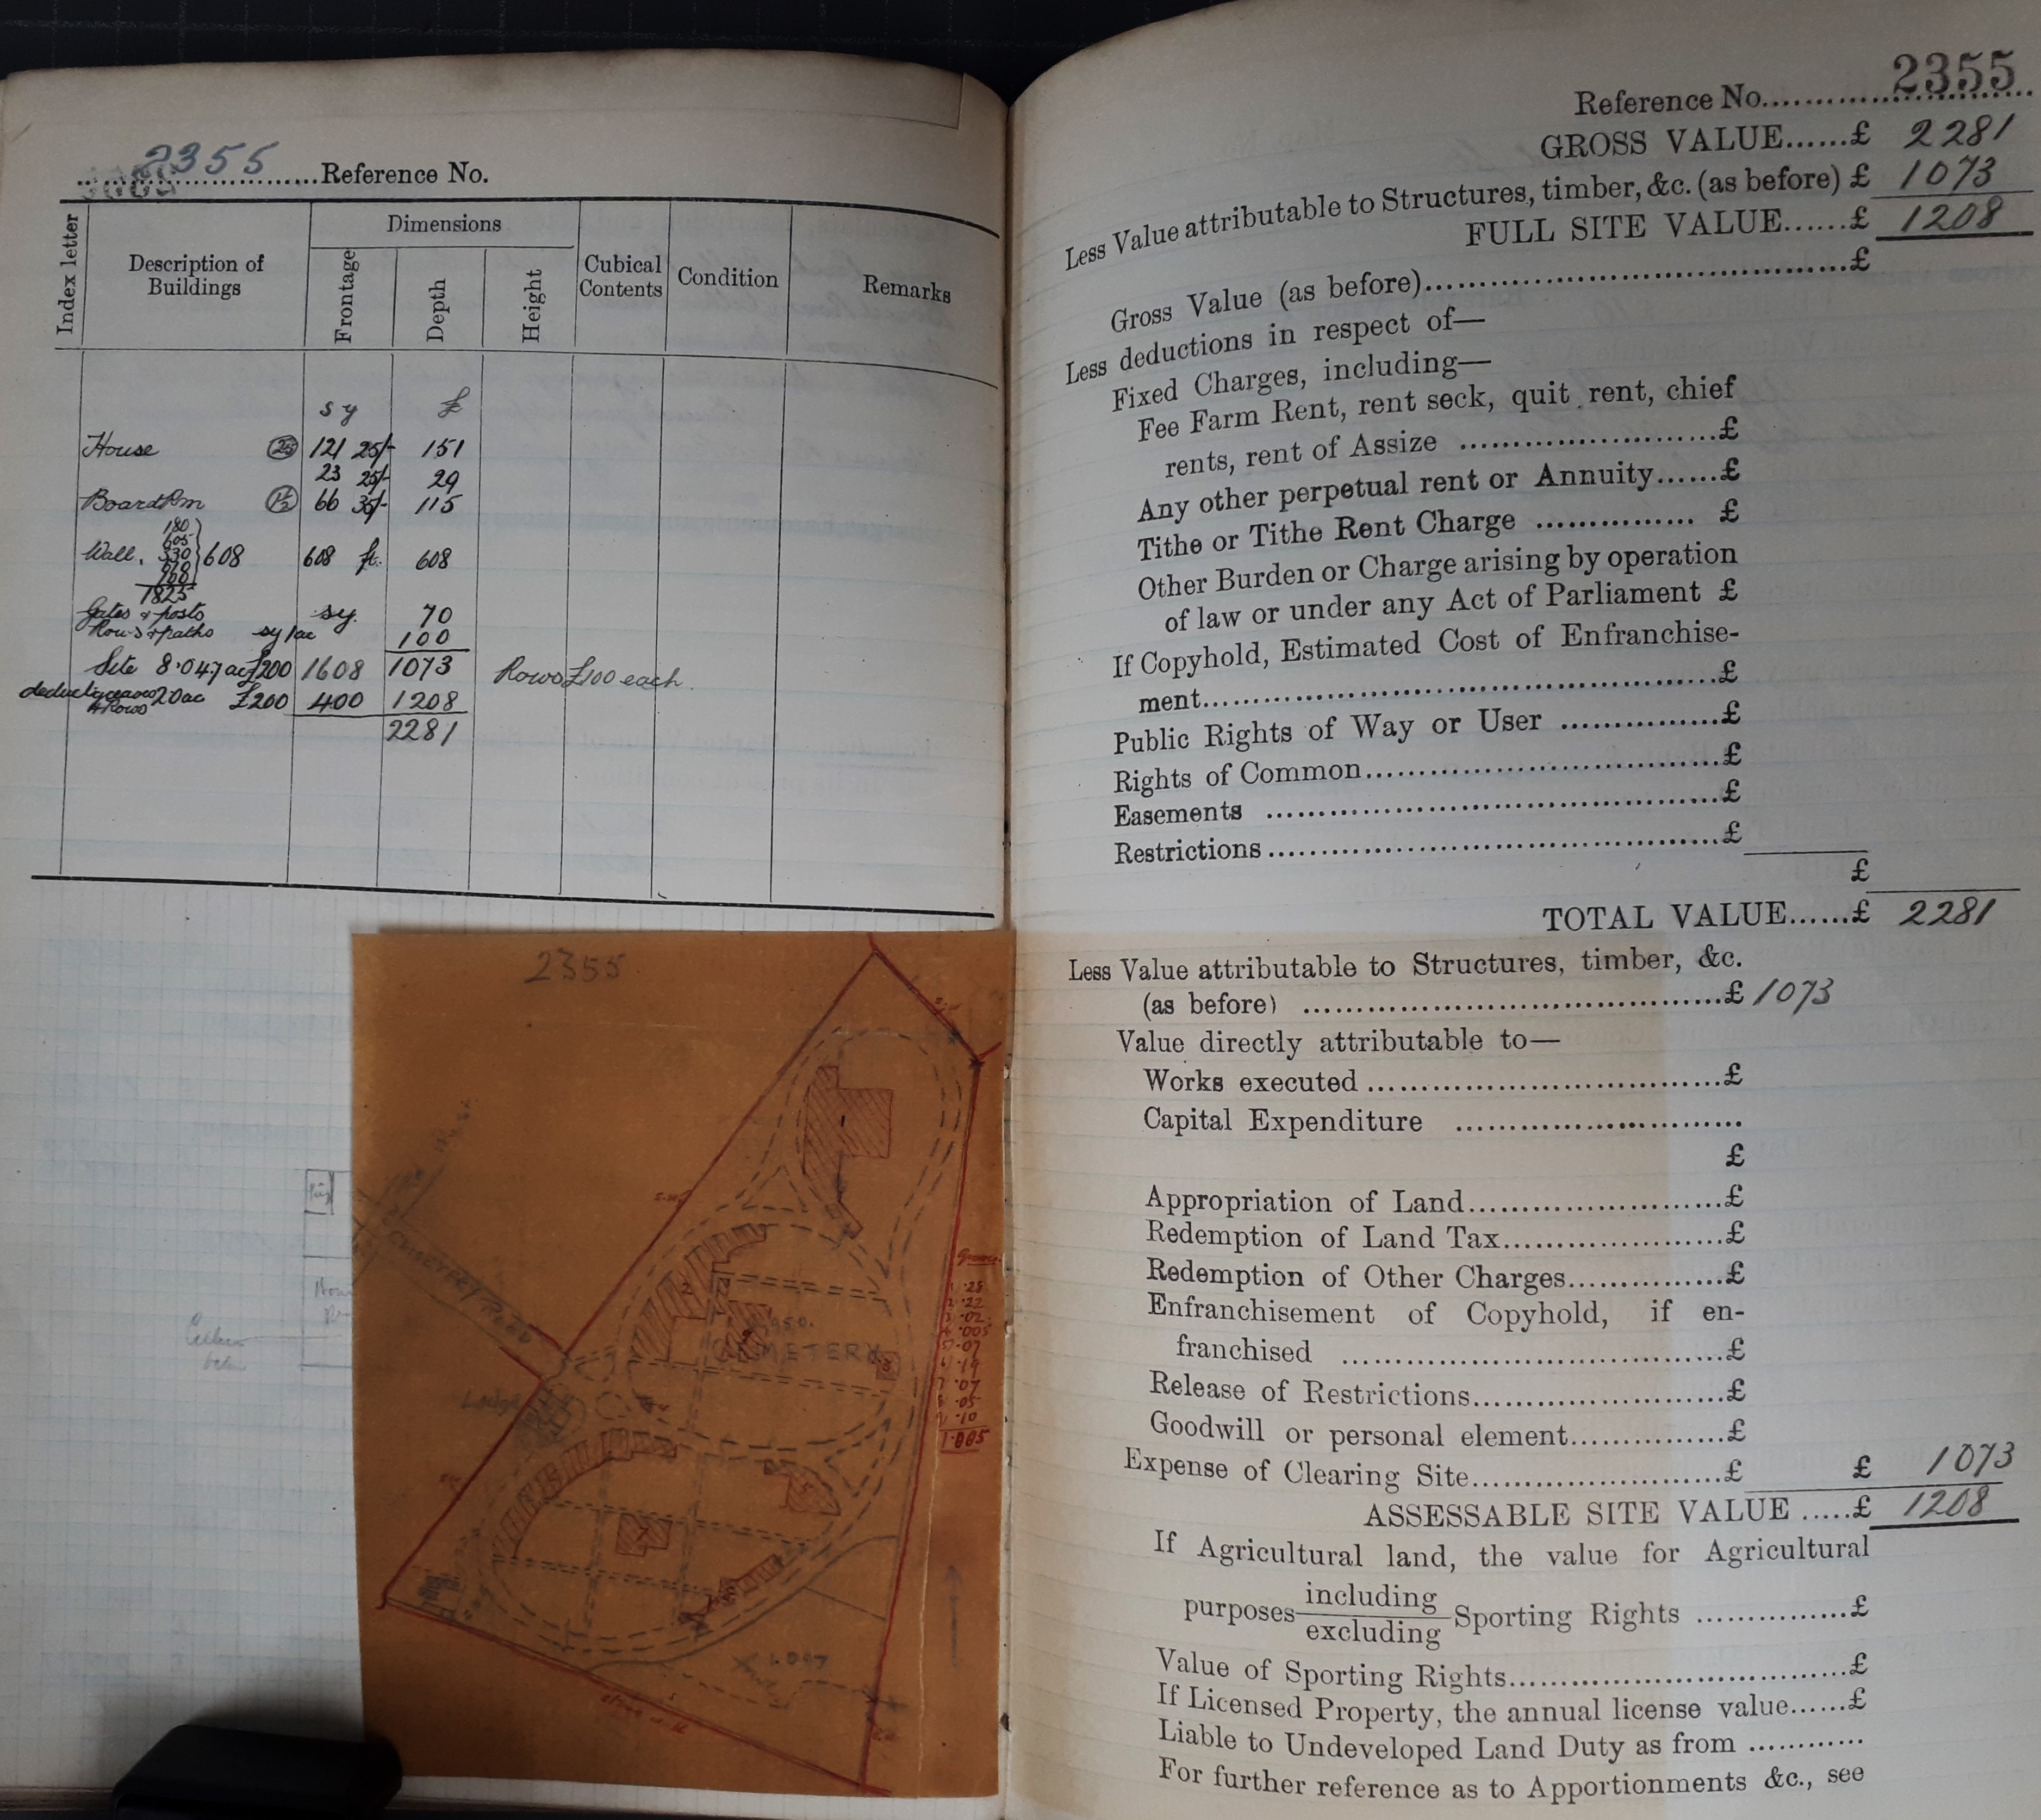 2355
Reference No.
Index letter
Description of Buildings
Dimensions
Frontage
Depth
Height
Cubical Contents
Condition
Remarks
sy £
House 25 121 25/- 151
23 25/- 29
Board Rm 66 35/- 115
180
605
330
Wall. 608 608 ft. 608
1825
Gates & posts sy. 70
Rows & paths sy/ac 100
Site 8.047 ac £200 1608 1073 Rows £100 each.
deduct graves 20ac £200 400 1208
4 Rows
2281
2355
CEMETERY ROAD
Lodge
CEMETERY
Graves.
1 .28
2 .22
3 .02
4 .005
5 .07
6 .19
7 .07
8 .05
9 .10
1.005
Reference No. 2355
GROSS VALUE......£ 2281
Less Value attributable to Structures, timber, &c. (as before) £ 1073
FULL SITE VALUE......£ 1208
Gross Value (as before)......£
Less deductions in respect of—
Fixed Charges, including—
Fee Farm Rent, rent seck, quit rent, chief
rents, rent of Assize ......£
Any other perpetual rent or Annuity......£
Tithe or Tithe Rent Charge ...... £
Other Burden or Charge arising by operation
of law or under any Act of Parliament £
If Copyhold, Estimated Cost of Enfranchise-
ment......£
Public Rights of Way or User ......£
Rights of Common......£
Easements ......£
Restrictions......£
£
TOTAL VALUE......£ 2281
Less Value attributable to Structures, timber, &c.
(as before) ......£ 1073
Value directly attributable to—
Works executed ......£
Capital Expenditure ......
£
Appropriation of Land......£
Redemption of Land Tax......£
Redemption of Other Charges......£
Enfranchisement of Copyhold, if en-
franchised ......£
Release of Restrictions......£
Goodwill or personal element......£
Expense of Clearing Site......£ £ 1073
ASSESSABLE SITE VALUE .....£ 1208
If Agricultural land, the value for Agricultural
purposes including
excluding Sporting Rights ......£
Value of Sporting Rights......£
If Licensed Property, the annual license value......£
Liable to Undeveloped Land Duty as from ............
For further reference as to Apportionments &c., see